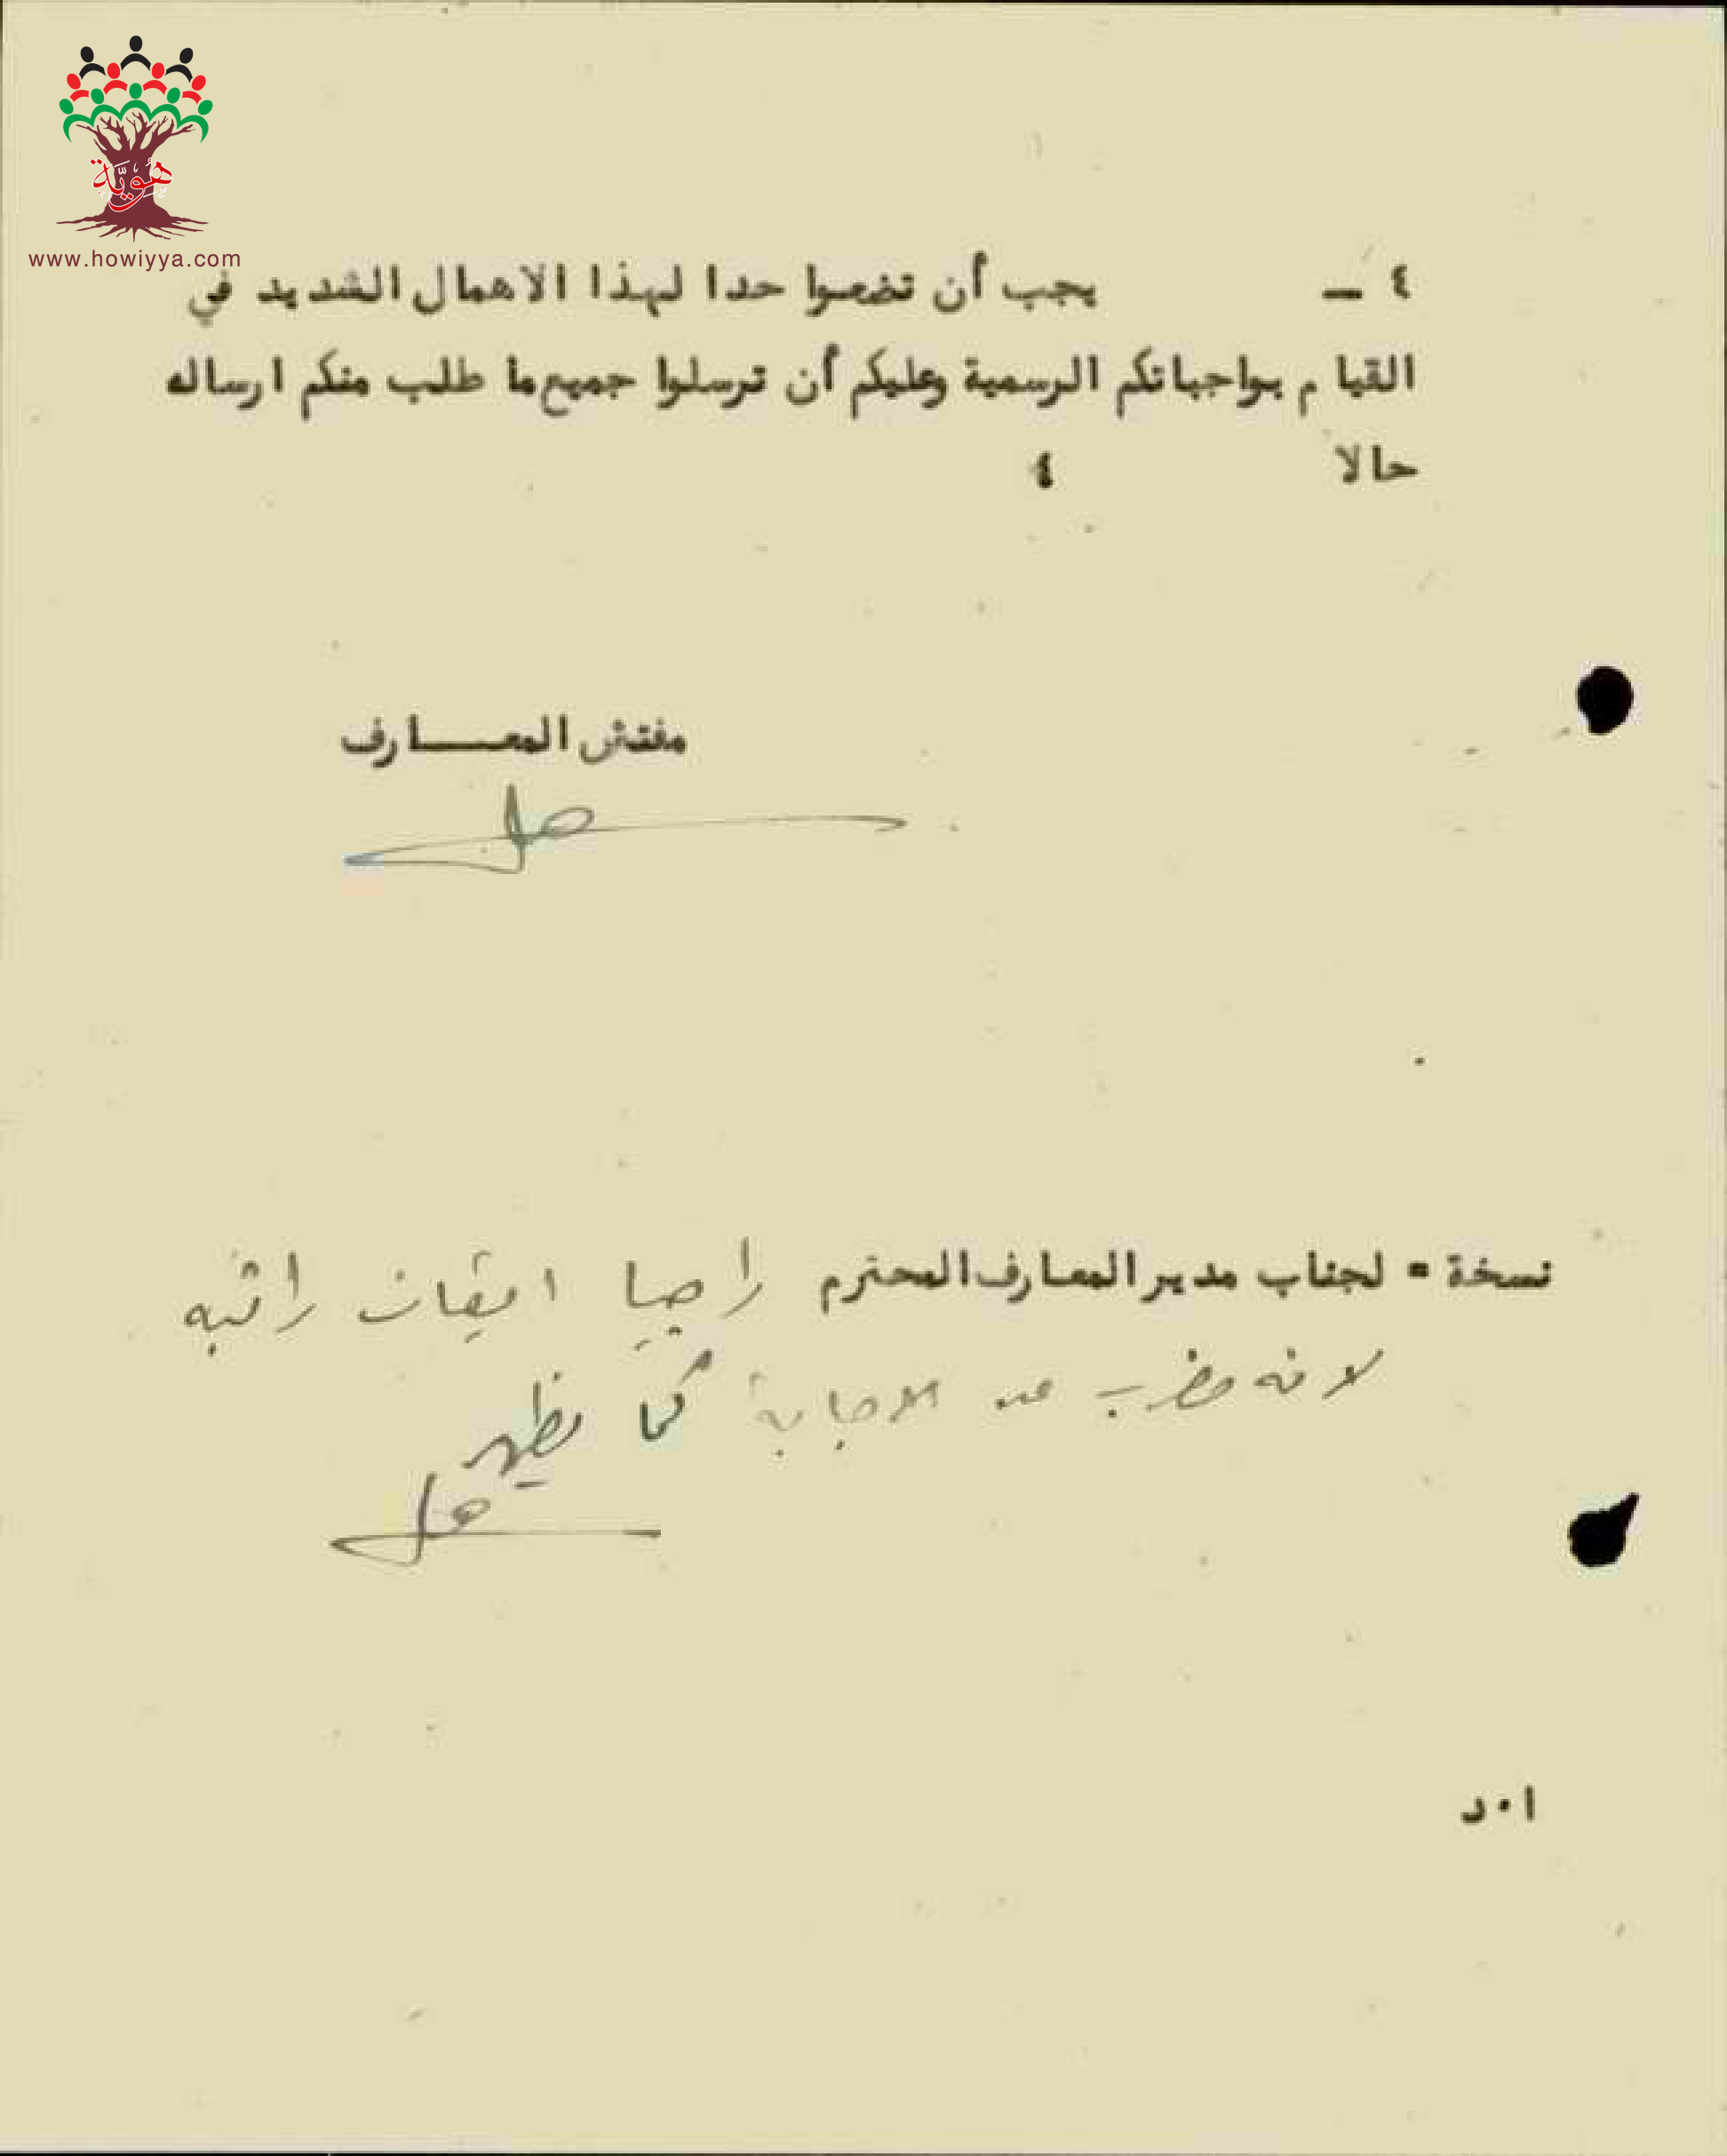 هوية
www.howiyya.com
٤ — يجب أن تضعوا حدا لهذا الاهمال الشديد في
القيام بواجباتكم الرسمية وعليكم أن ترسلوا جميع ما طلب منكم ارساله
حالا ٤
مفتش المعـــارف
نسخة = لجناب مدير المعارف المحترم راجيا ايقاف راتبه
لانه مضرب عن الاجابة كما يظهر
ا٠د